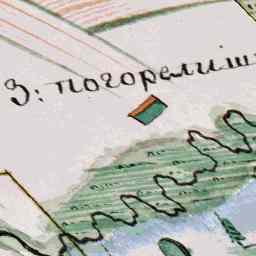 З: погорелиш